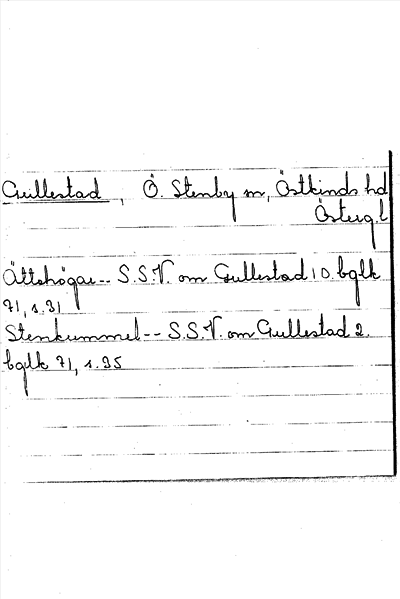 Gullestad, Ö. Stenby sn, Östkinds hd
Östergl
Ättehögar -- S.S.V. om Gullestad 10. bglk
71, s. 31
Stenkummel -- S.S.V. om Gullestad 2.
bglk 71, s. 35